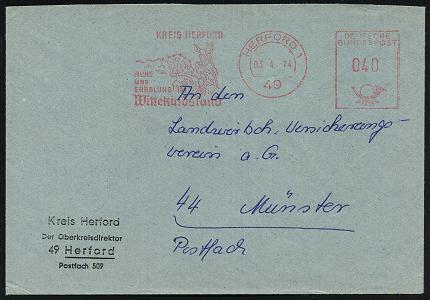 KREIS HERFORD
RUHE
UND
ERHOLUNG IM
Wittekindsland
HERFORD 1
03.4.74
49
DEUTSCHE
BUNDESPOST
040
An den
Landwirtsch. Versicherungs-
verein a. G.
44 Münster
Postfach
Kreis Herford
Der Oberkreisdirektor
49 Herford
Postfach 509